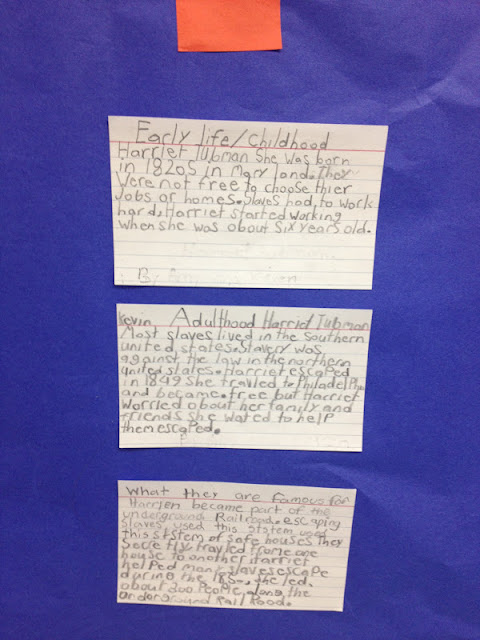 Early life/childhood
Harriet Tubman She was born
in 1820s in Mary land. They
were not free to choose thier
Jobs or homes. Slaves had to work
hard. Harriet started working
when she was about six years old.
By
Kevin Adulthood Harriet Tubman
Most slaves lived in the southern
united states. Slavery was
against the law in the northern
united states. Harriet escaped
in 1849 she travled to Philadelphia
and became free but Harriet
worried about her family and
friends she wated to help
them escaped.
What they are famous for
became part of the
underground Railroad. escaping
slaves used this system used
this ststem of safe houses they
travled frome one
house to another Harriet
helped many slaves escape
during the she led
about 200 People along the
underground Rail Road.